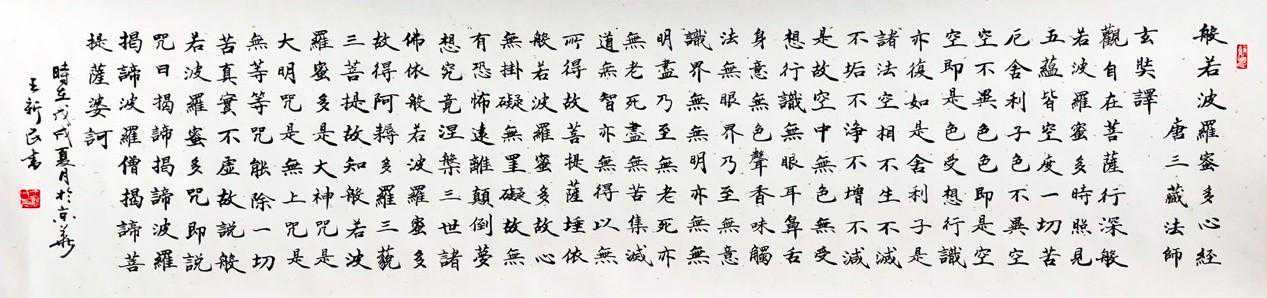 般若波羅蜜多心經
唐三藏法師
玄奘譯
觀自在菩薩行深般
若波羅蜜多時照見
五蘊皆空度一切苦
厄舍利子色不異空
空不異色色即是空
空即是色受想行識
亦復如是舍利子是
諸法空相不生不滅
不垢不净不增不減
是故空中無色無受
想行識無眼耳鼻舌
身意無色聲香味觸
法無眼界乃至無意
識界無無明亦無無
明盡乃至無老死亦
無老死盡無苦集滅
道無智亦無得以無
所得故菩提薩埵依
般若波羅蜜多故心
無掛礙無罣礙故無
有恐怖遠離顛倒夢
想究竟涅槃三世諸
佛依般若波羅蜜多
故得阿耨多羅三藐
三菩提故知般若波
羅蜜多是大神咒是
大明咒是無上咒是
無等等咒能除一切
苦真實不虛故説般
若波羅蜜多咒即説
咒曰揭諦揭諦波羅
揭諦波羅僧揭諦菩
提薩婆訶
時在戊戌夏月於京華
王新民書